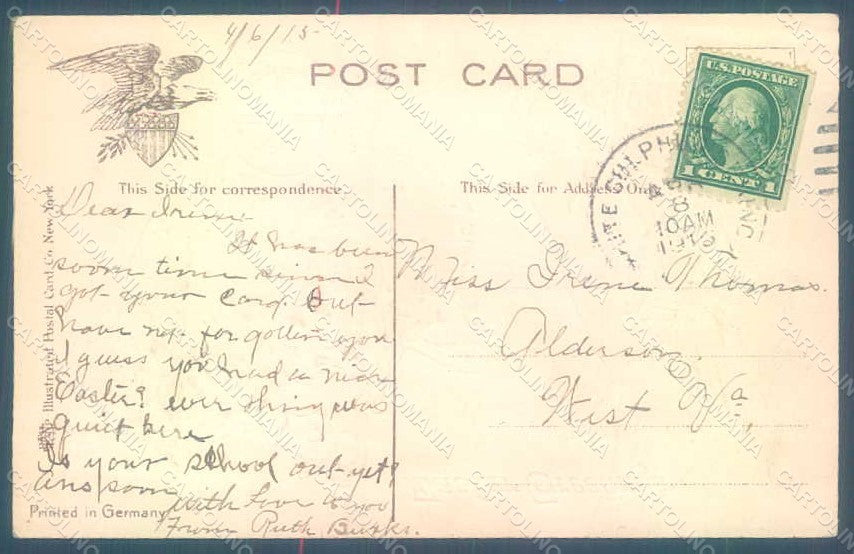 4/6/15
POST CARD
U.S. POSTAGE
1 CENT 1
WHITE SULPH
8
10AM
This Side for correspondence
This Side for Address Only
Illustrated Postal Card Co New York
Dear Irene
It has been
soom time since I
got your Card. But
have not forgotten you
I guess you had a nice
Easter? ever thing was
quiet here
Is your school out yet?
ans soon
with Love to you
From Ruth Burks.
Miss Irene Thomas.
Alderson.
West Va.
Printed in Germany
CARTOLINOMANIA